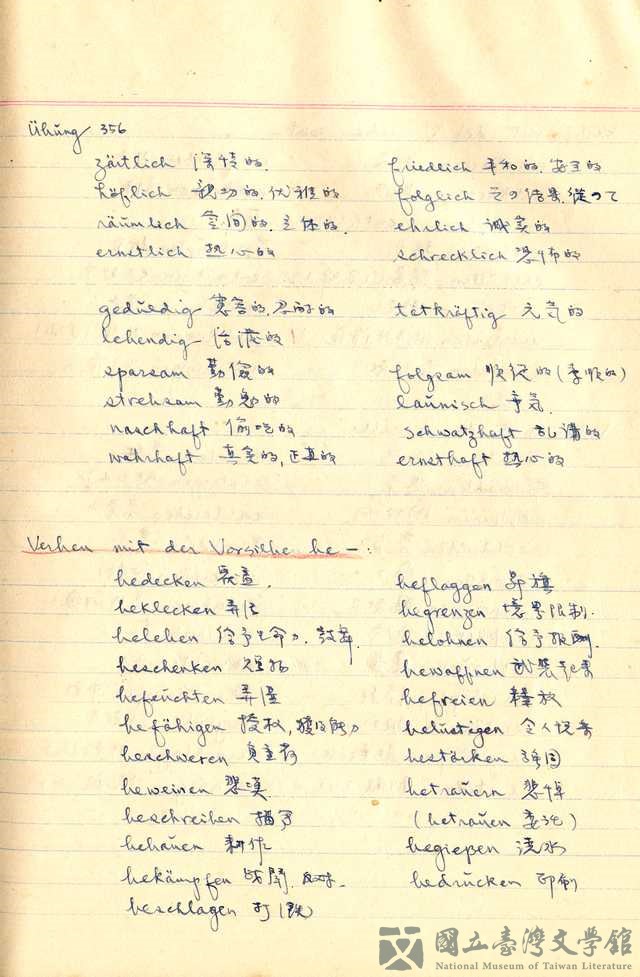 Übung 356
zärtlich 深情的 friedlich 平和的,安寧的
höflich 親切的,优雅的 folglich その结果,從つて
räumlich 空间的,立体的, ehrlich 誠实的
ernstlich 热心的 schrecklich 恐怖的
geduldig 寛容的,忍耐的 tatkräftig 元気的
lebendig 活潑的!
sparsam 勤儉的 folgsam 順從的(孝順的)
strebsam 勤勉的 launisch
naschhaft 偷吃的 schwatzhaft 乱講的
wahrhaft 真実的,正真的 ernsthaft 热心的
Verben mit der Vorsilbe be–:
bedecken 覆蓋. beflaggen 昇旗
beklecken 弄污 begrenzen 境界限制.
beleben 給予生命力,鼓舞. belohnen 給予报酬
beschenken bewaffnen 武裝起來
befeuchten 弄湿 befreien 釋放
befähigen 授权,獲得能力 belustigen 令人悦楽
beschweren 負重荷 bestärken
beweinen 悲漢 betrauern 悲悼
beschreiben 描写 (betrauen 委託)
behauen 耕作 begießen 澆水
bekämpfen 战鬥, bedrucken 印刷
beschlagen 打
國立臺灣文學館
National Museum of Taiwan Literature